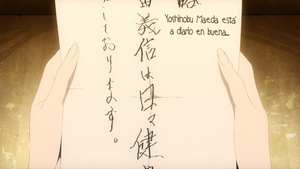 略
田義信は日々健
しております。
Yoshinobu Maeda está
a diario en buena...